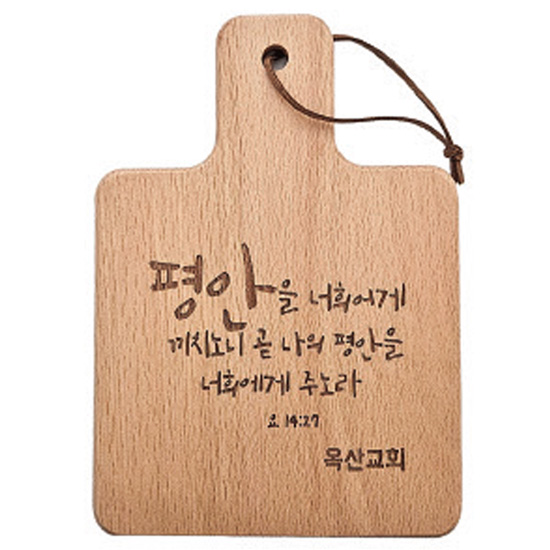 평안을 너희에게
끼치노니 곧 나의 평안을
너희에게 주노라
요 14:27
옥산교회